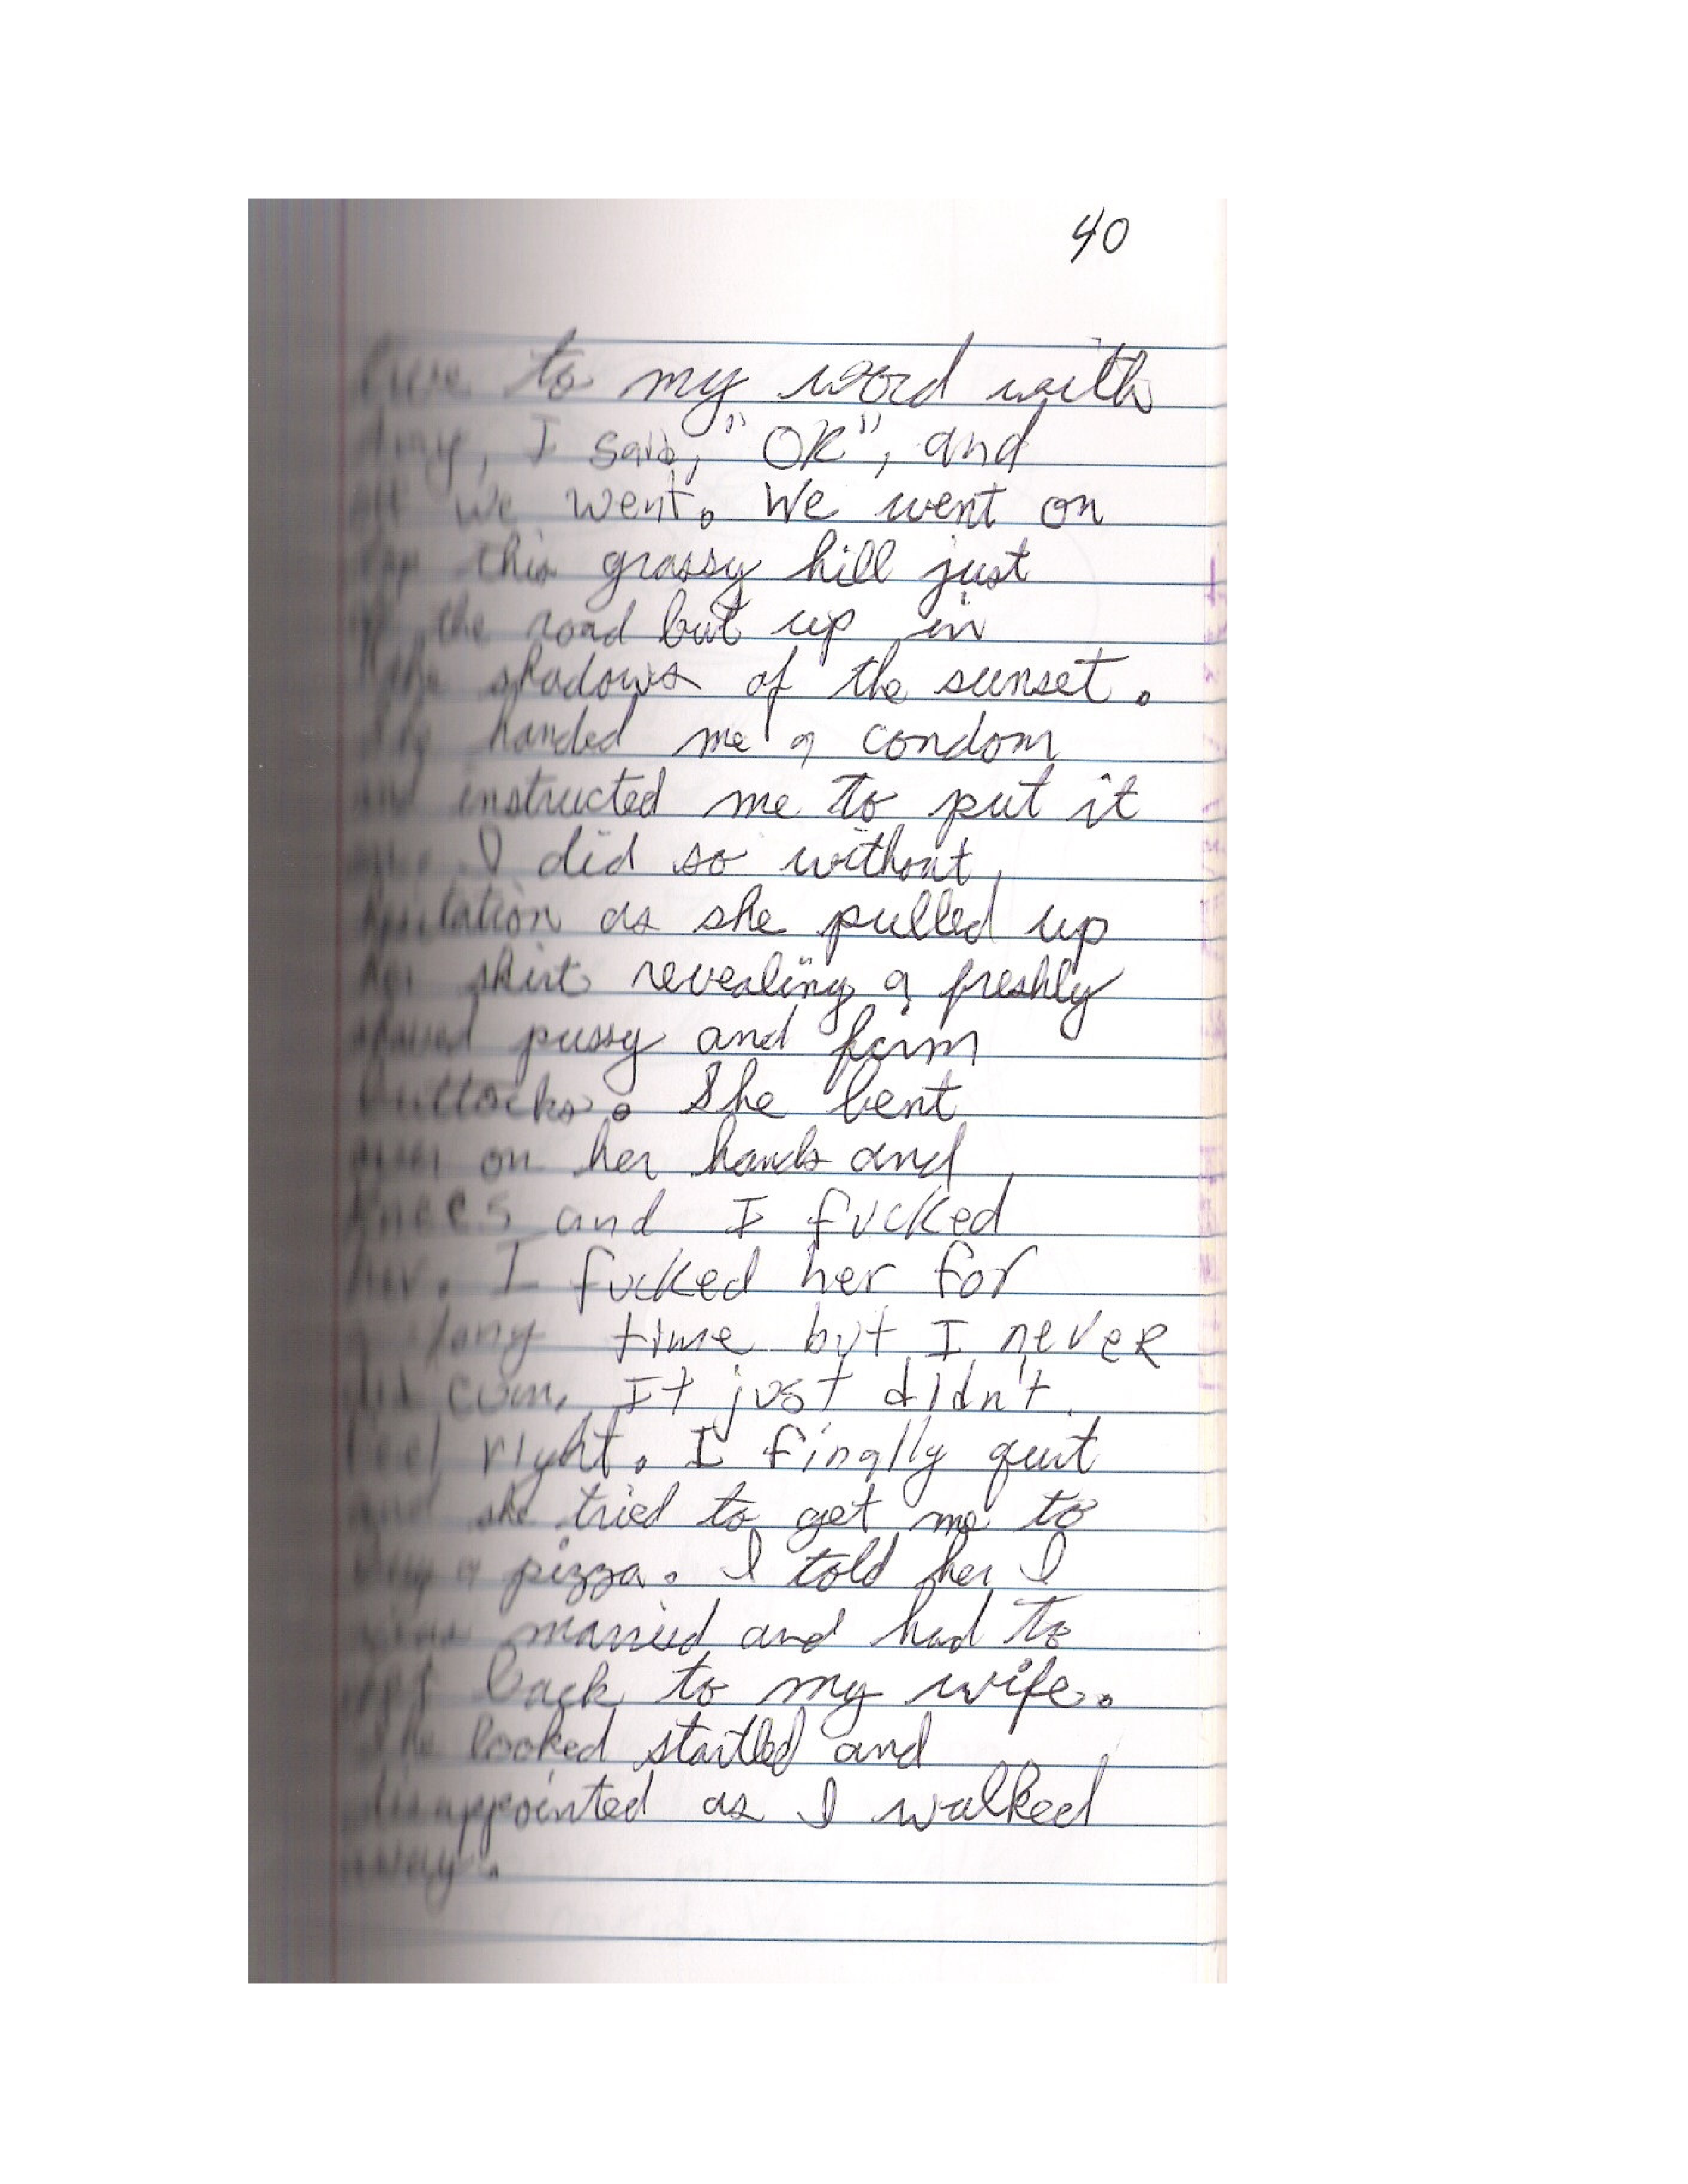 40
to my word with
I said, "OK", and
we went. We went on
this grassy hill just
the road but up in
the shadows of the sunset.
She handed me a condom
and instructed me to put it
on. I did so without
hesitation as she pulled up
her skirt revealing a freshly
shaved pussy and firm
buttocks. She bent
over on her hands and
knees and I fucked
her. I fucked her for
a long time but I never
did cum. It just didn't
feel right. I finally quit
and she tried to get me to
buy a pizza. I told her I
was married and had to
get back to my wife.
She looked startled and
disappointed as I walked
away.